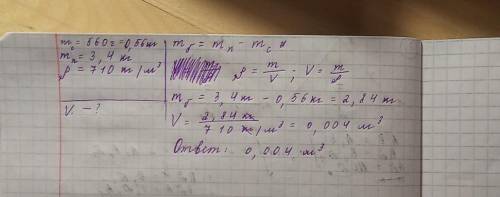 m = 560 г = 0,56 кг
mп = 3,4 кг
ρ = 710 кг/м³
V - ?
mб = mп - mс
ρ = m/V ; V = m/ρ
mб = 3,4 кг - 0,56 кг = 2,84 кг
V = 2,84 кг / 710 кг/м³ = 0,004 м³
Ответ: 0,004 м³